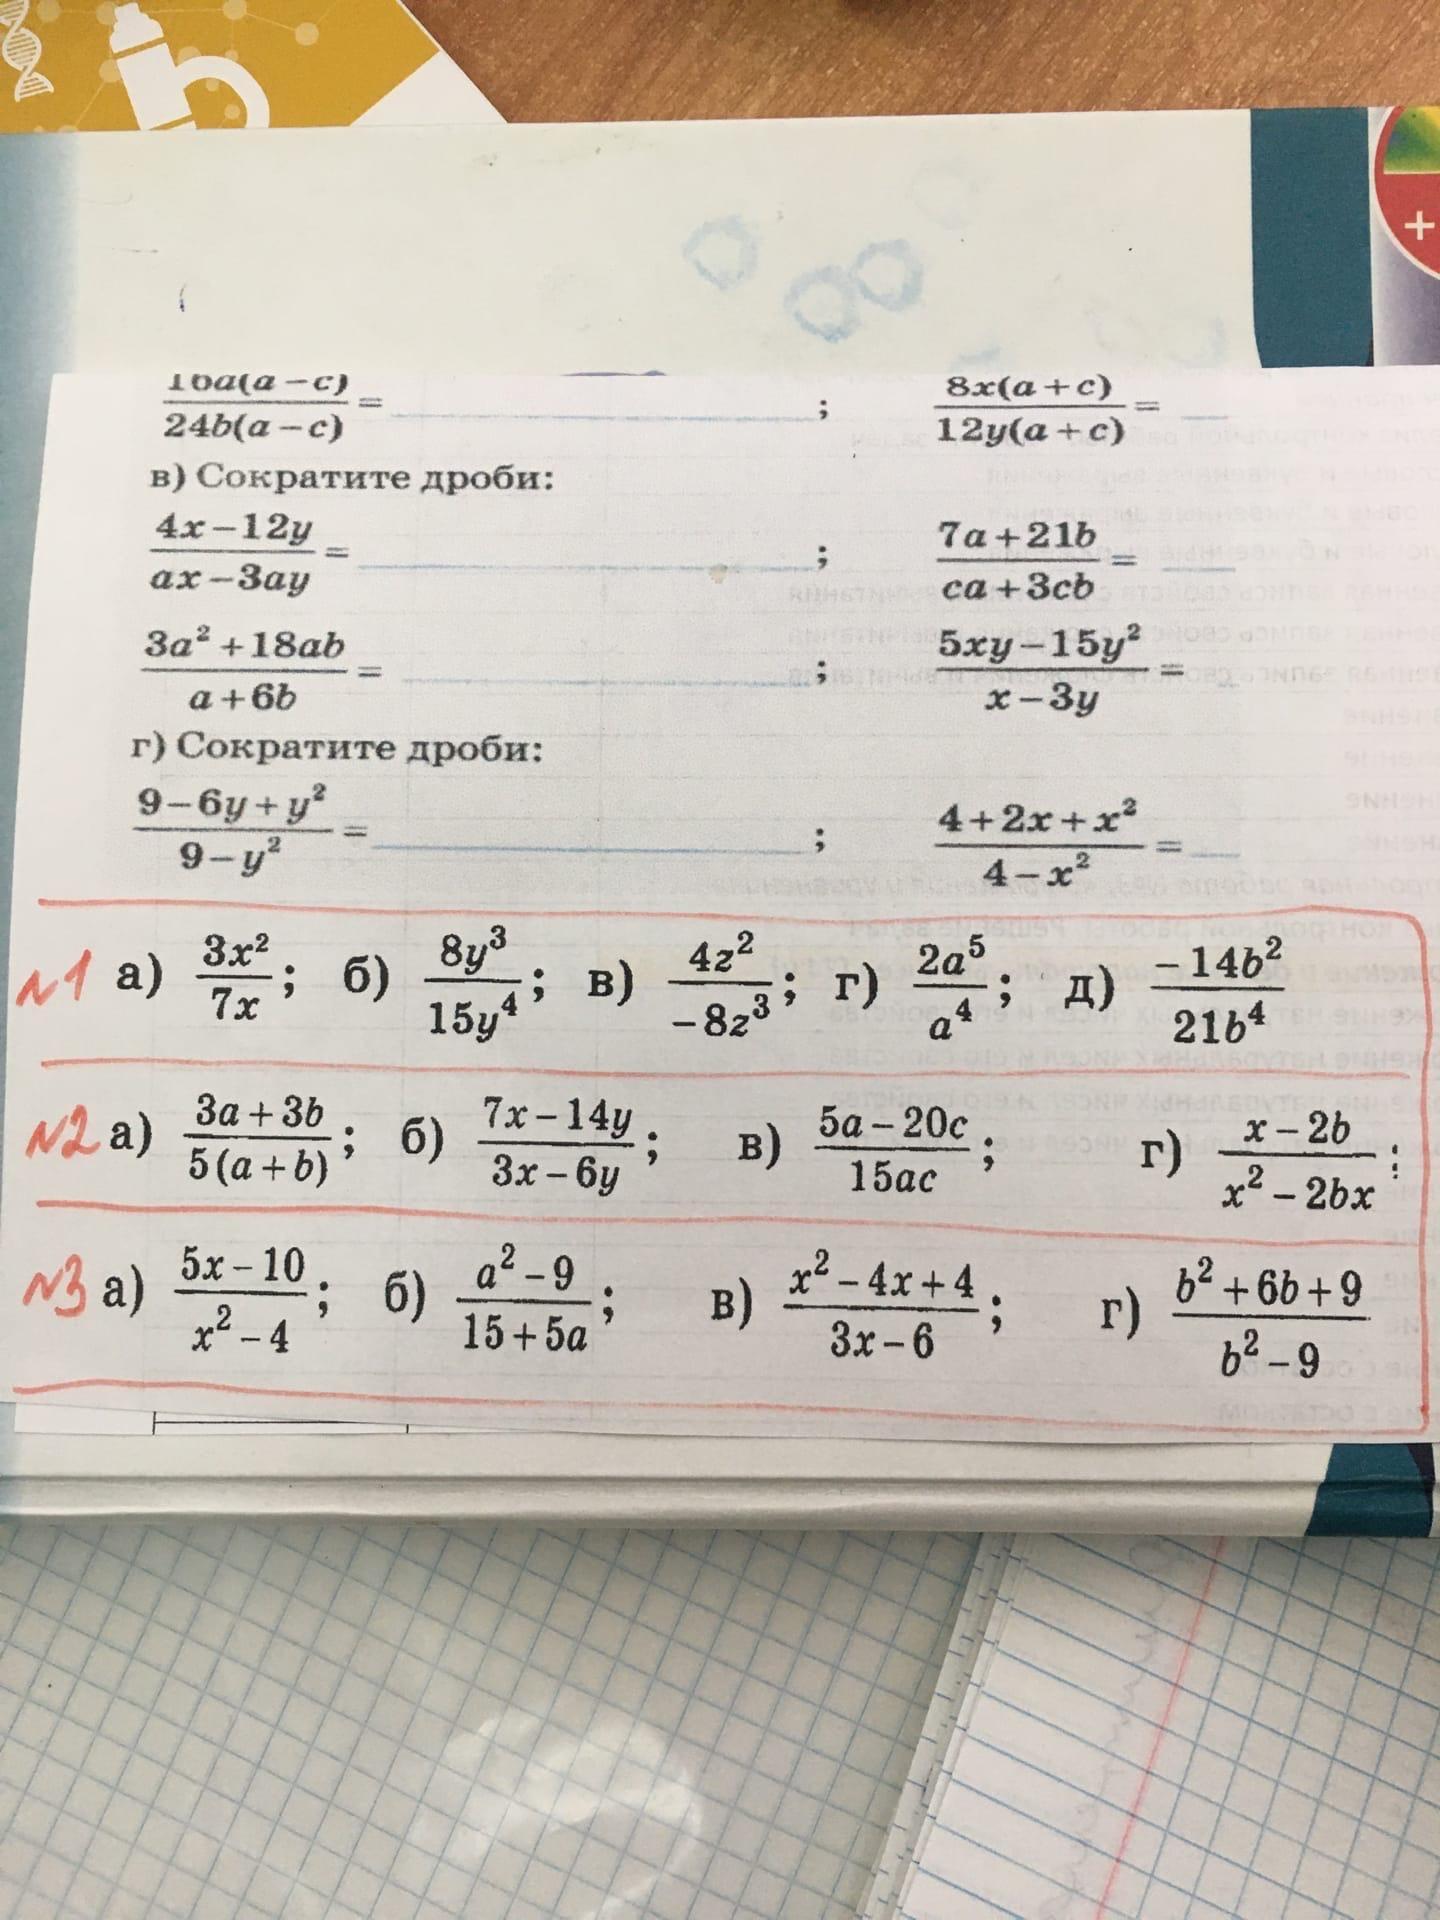 16a(a-c)/24b(a-c) = ; 8x(a+c)/12y(a+c) =
в) Сократите дроби:
4x-12y/ax-3ay = ; 7a+21b/ca+3cb =
3a²+18ab/a+6b = ; 5xy-15y²/x-3y =
г) Сократите дроби:
9-6y+y²/9-y² = ; 4+2x+x²/4-x² =
№1 а) 3x²/7x; б) 8y³/15y⁴; в) 4z²/-8z³; г) 2a⁵/a⁴; д) -14b²/21b⁴
№2 а) 3a+3b/5(a+b); б) 7x-14y/3x-6y; в) 5a-20c/15ac; г) x-2b/x²-2bx;
№3 а) 5x-10/x²-4; б) a²-9/15+5a; в) x²-4x+4/3x-6; г) b²+6b+9/b²-9